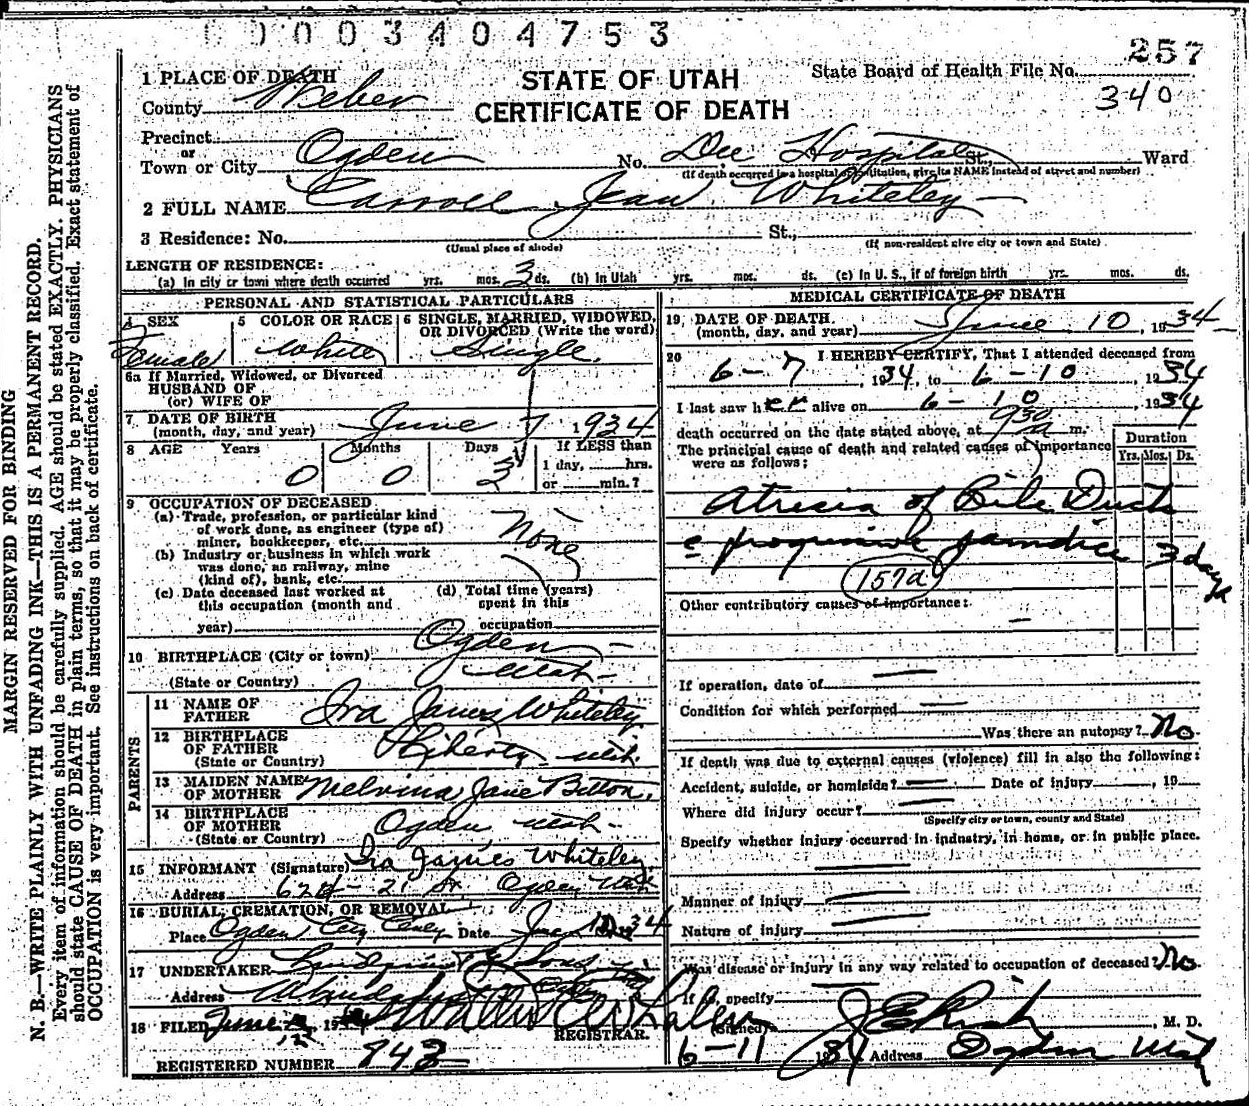 00003404753
257
STATE OF UTAH
CERTIFICATE OF DEATH
State Board of Health File No.
340
1 PLACE OF DEATH
County Weber
Precinct
or
Town or City Ogden No. Dee Hospital St., Ward
(If death occurred in a hospital or institution, give its NAME instead of street and number)
2 FULL NAME Carroll Jean Whiteley
3 Residence: No. St.,
(Usual place of abode) (If non-resident give city or town and State)
LENGTH OF RESIDENCE:
(a) In city or town where death occurred yrs. mos. 3 ds. (b) In Utah yrs. mos. ds. (c) In U. S., if of foreign birth yrs. mos. ds.
PERSONAL AND STATISTICAL PARTICULARS
4 SEX
Female
5 COLOR OR RACE
White
6 SINGLE, MARRIED, WIDOWED, OR DIVORCED (Write the word)
Single
6a If Married, Widowed, or Divorced
HUSBAND OF
(or) WIFE OF
7 DATE OF BIRTH
(month, day, and year) June 7 1934
8 AGE Years Months Days If LESS than
0 0 3 1 day, hrs.
or min.?
9 OCCUPATION OF DECEASED
(a) Trade, profession, or particular kind
of work done, as engineer (type of)
miner, bookkeeper, etc. None
(b) Industry or business in which work
was done, as railway, mine
(kind of), bank, etc.
(c) Date deceased last worked at
this occupation (month and
year)
(d) Total time (years)
spent in this
occupation
10 BIRTHPLACE (City or town) Ogden
(State or Country) Utah
PARENTS
11 NAME OF
FATHER Ira James Whiteley
12 BIRTHPLACE
OF FATHER
(State or Country) Liberty Utah
13 MAIDEN NAME
OF MOTHER Melvina Jane Bitton
14 BIRTHPLACE
OF MOTHER
(State or Country) Ogden Utah
15 INFORMANT (Signature) Ira James Whiteley
Address 21 St. Ogden Utah
16 BURIAL, CREMATION, OR REMOVAL
Place Ogden City Date June 34
17 UNDERTAKER
Address
18 FILED June
REGISTRAR.
REGISTERED NUMBER 943
MEDICAL CERTIFICATE OF DEATH
19 DATE OF DEATH
(month, day, and year) June 10, 1934
20 I HEREBY CERTIFY, That I attended deceased from
6-7, 1934, to 6-10, 1934
I last saw her alive on 6-10, 1934
death occurred on the date stated above, at 9 30 a m.
The principal cause of death and related causes of importance
were as follows:
Duration
Yrs. Mos. Ds.
Atresia of Bile Ducts
c progressive jaundice 3 days
157a
Other contributory causes of importance:
If operation, date of
Condition for which performed
Was there an autopsy? No
If death was due to external causes (violence) fill in also the following:
Accident, suicide, or homicide? Date of injury, 19
Where did injury occur?
(Specify city or town, county and State)
Specify whether injury occurred in industry, in home, or in public place.
Manner of injury
Nature of injury
Was disease or injury in any way related to occupation of deceased? No
If so, specify
(Signed) J E Rich, M. D.
6-11 1934 Address Ogden Utah
MARGIN RESERVED FOR BINDING
N. B.—WRITE PLAINLY WITH UNFADING INK—THIS IS A PERMANENT RECORD.
Every item of information should be carefully supplied. AGE should be stated EXACTLY. PHYSICIANS
should state CAUSE OF DEATH in plain terms, so that it may be properly classified. Exact statement of
OCCUPATION is very important. See instructions on back of certificate.